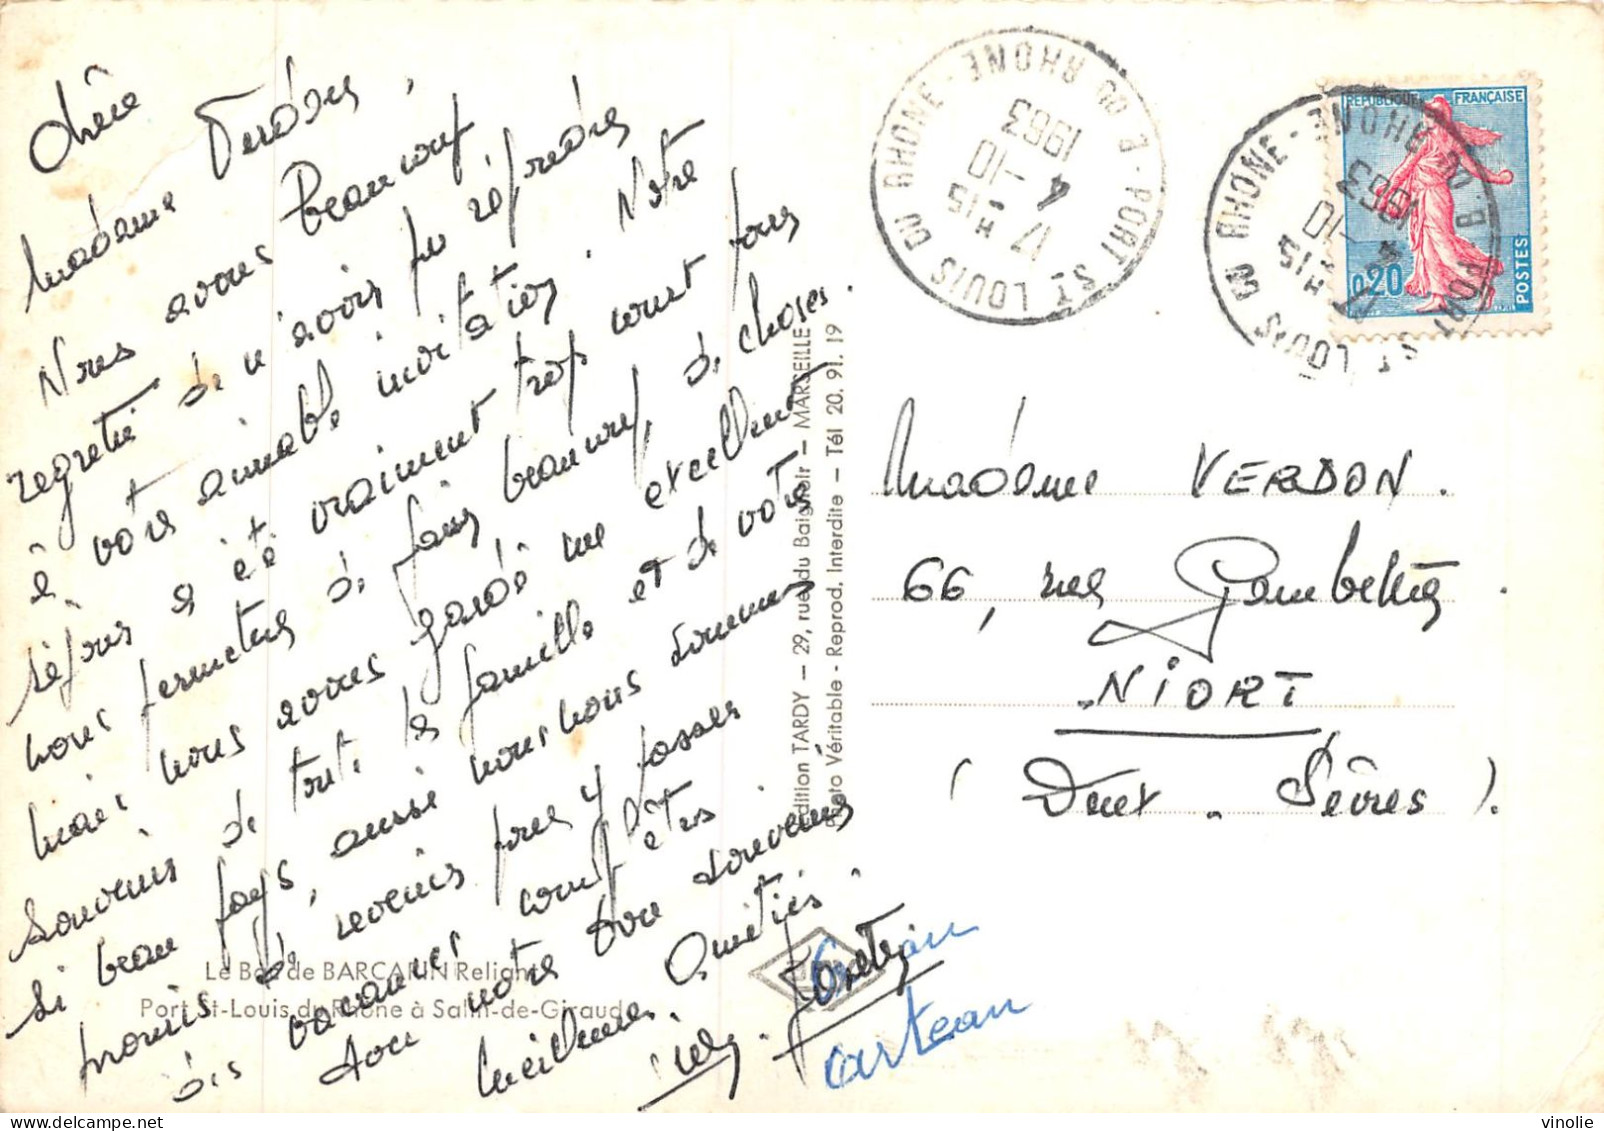 chère
Madame Verdon,
Nous avons Beaucoup
regretté de n'avoir pu répondre
à votre aimable invitation. Notre
séjour a été vraiment trop court pour
nous permettre de faire beaucoup de choses.
Mais nous avons gardé un excellent
souvenir de toute la famille et de votre
si beau pays, aussi nous nous sommes
promis de revenir pour y passer
des vacances complètes.
Avec notre bon souvenir
Meilleures Amitiés.
carteau
Le Bac de BARCARIN Reliant
Port-St-Louis du Rhône à Salin-de-Giraud
Edition TARDY — 29, rue du Baignoir — MARSEILLE
Photo Véritable - Reprod. Interdite - Tél 20. 91. 19
PORT ST LOUIS DU RHONE - B. DU RHONE
17 H 15
4 -10
1963
PORT ST LOUIS DU RHONE - B. DU RHONE
17 H 15
4 -10
1963
REPUBLIQUE FRANÇAISE
0,20
POSTES
Madame VERDON.
66, rue Gambetta.
NIORT
(Deux-Sèvres).
vinolie